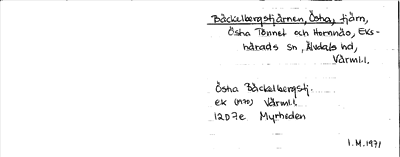 Bäckelbergstjärnen, Östra, tjärn,
Östra Tönnet och Hornnäo, Eks-
härads sn, Älvdals hd,
Värml.l.
Östra Bäckelbergstj.
ek (1970) Värml.l.
12D7e Myrheden
I.M. 1971